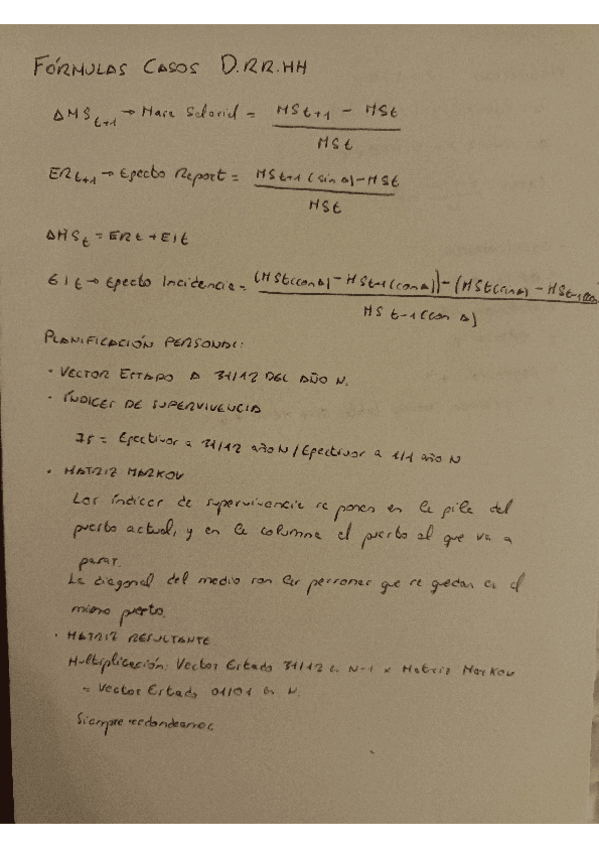 FÓRMULAS CASOS D.RR.HH
ΔMS t+1 → Masa Salarial = MS t+1 - MSt / MSt
ER t+1 → Efecto Report = MS t+1 (sin Δ) - MSt / MSt
ΔMS t = ER t + EI t
EI t → Efecto Incidencia = (MSt(con Δ) - MSt-1(con Δ)) - (MSt(sin Δ) - MSt-1(con / MS t-1 (con Δ)
PLANIFICACIÓN PERSONAL:
· VECTOR ESTADO A 31/12 DEL AÑO N.
· ÍNDICES DE SUPERVIVENCIA
IS = Efectivos a 31/12 año N / Efectivos a 1/1 año N
· MATRIZ MARKOV
Los índices de supervivencia se ponen en la fila del
puesto actual, y en la columna el puesto al que va a
pasar.
La diagonal del medio son las personas que se quedan en el
mismo puesto.
· MATRIZ RESULTANTE
Multiplicación: Vector Estado 31/12 en N-1 x Matriz Markov
= Vector Estado 01/01 en N.
Siempre redondeamos